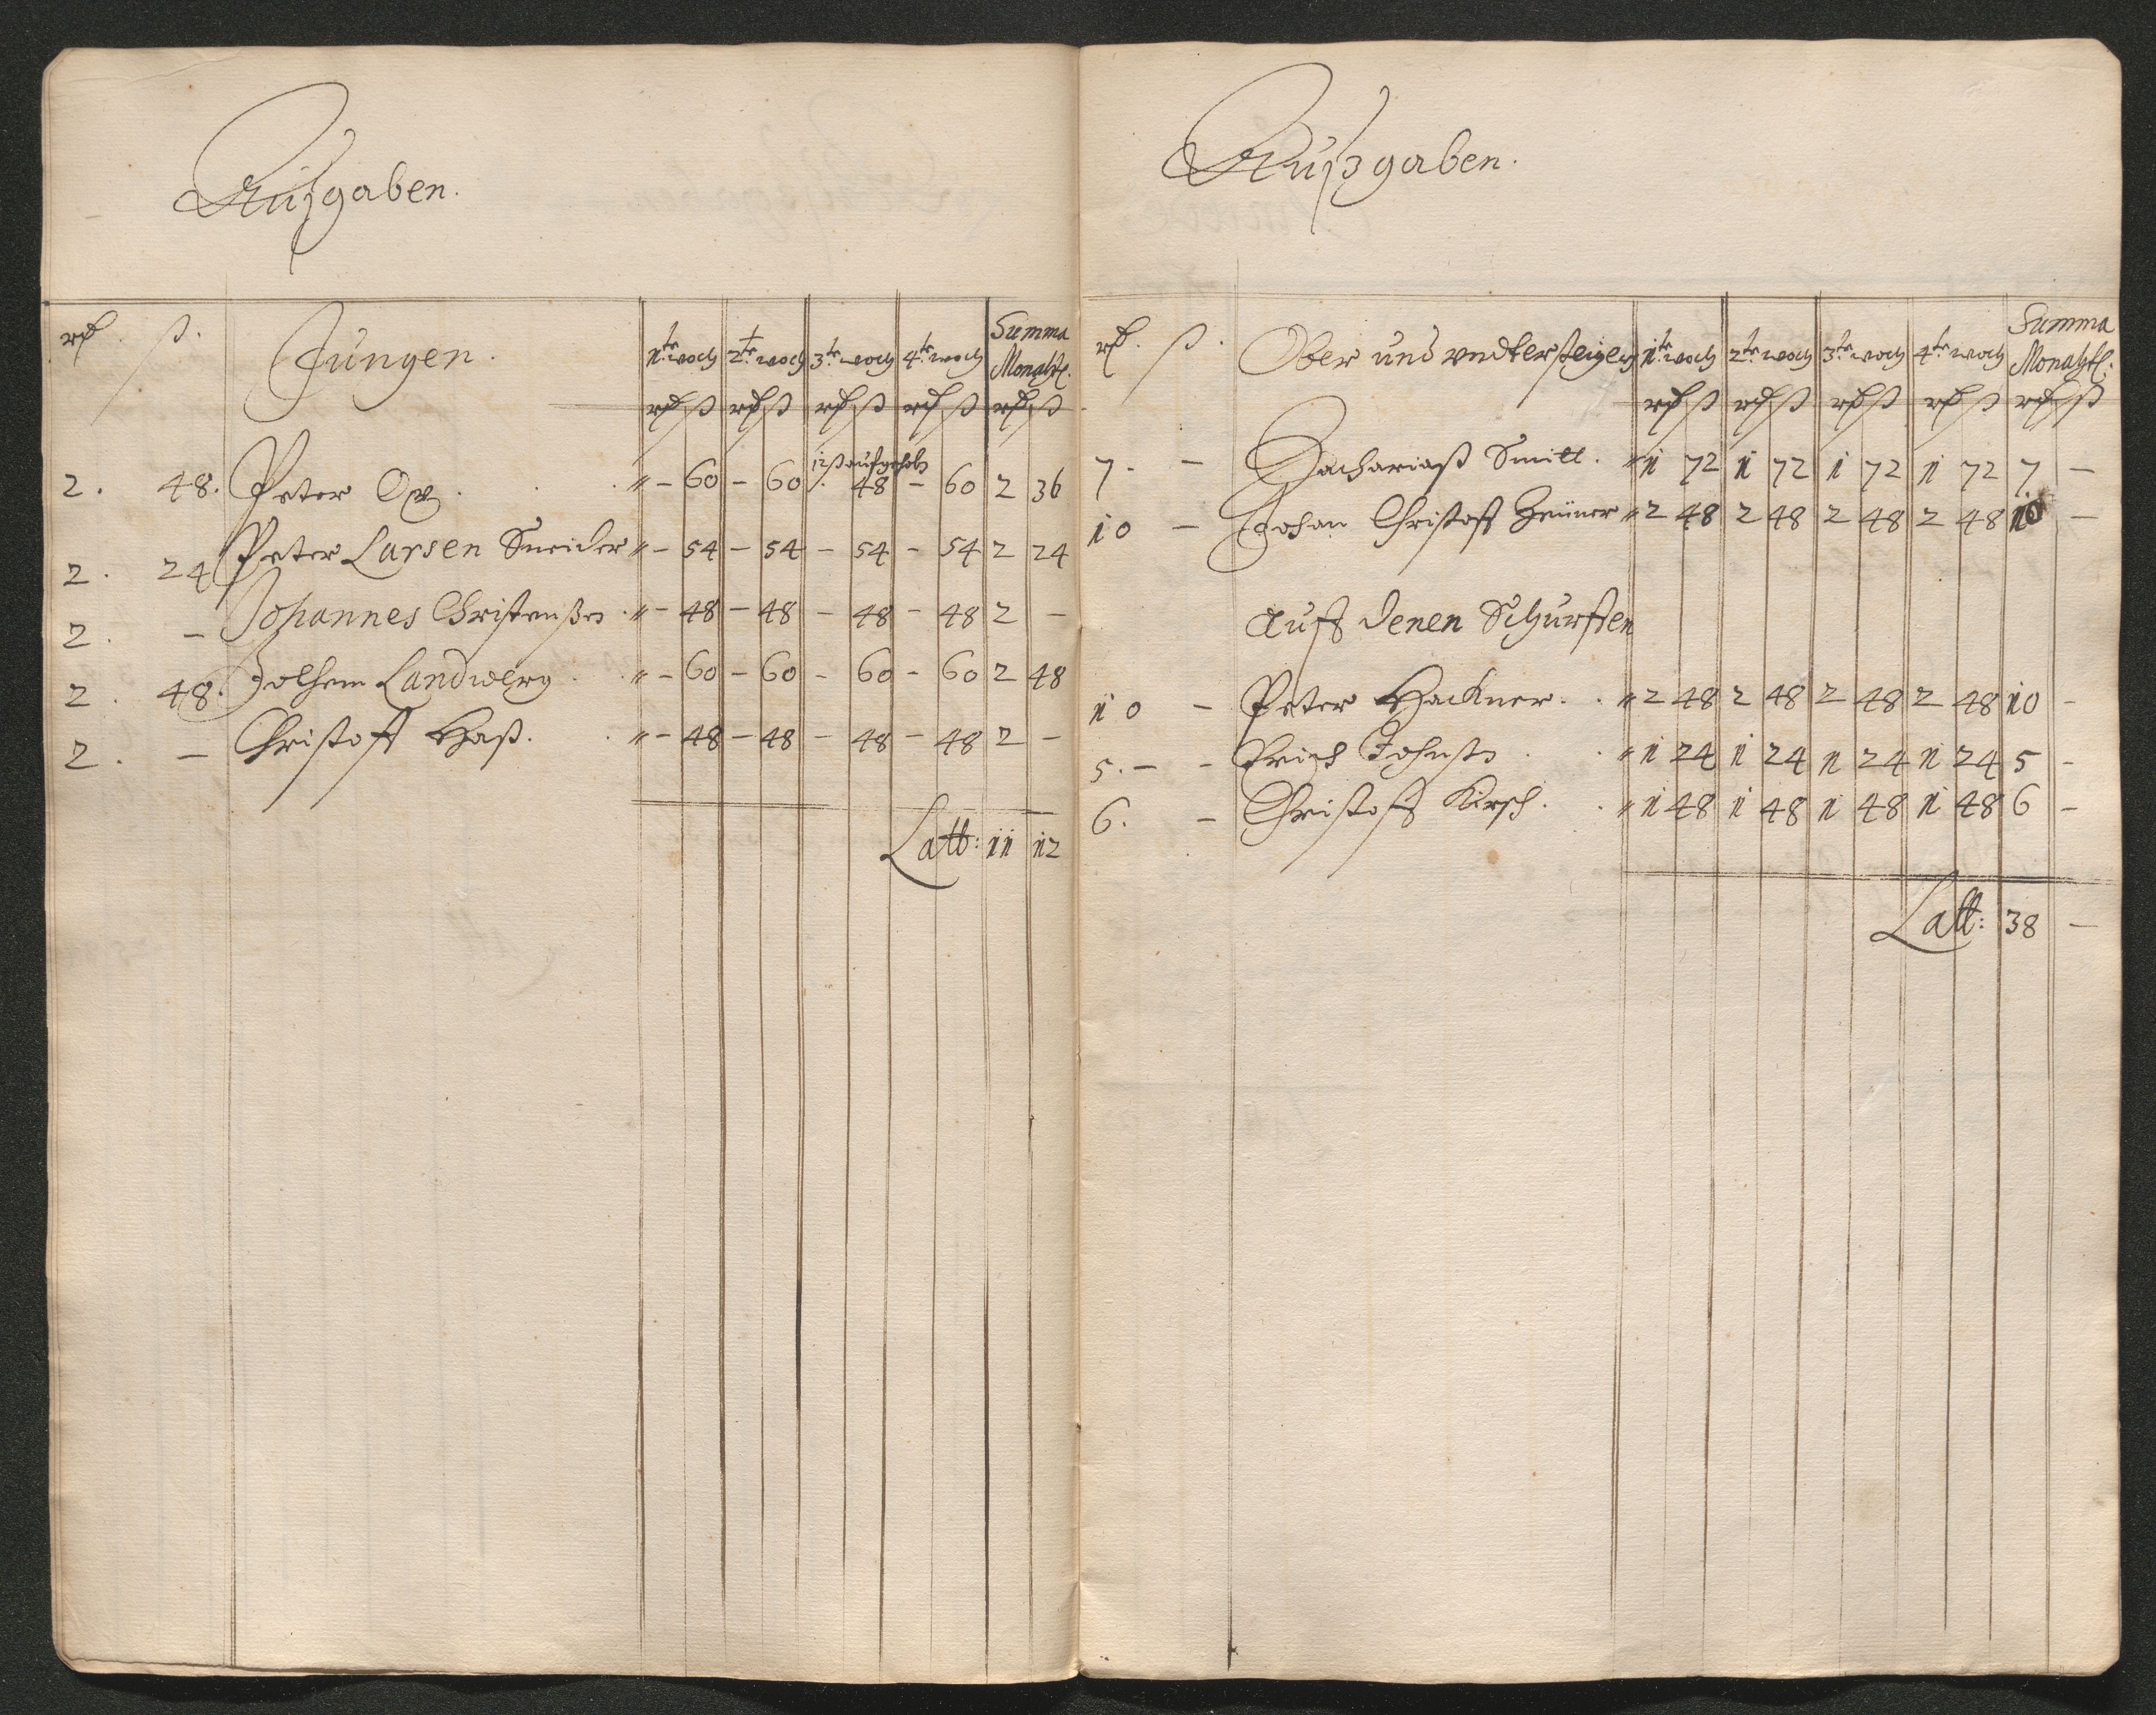 Außgaben.
rd. ß. Jungen. 1te woch 2te woch 3te woch 4te woch Summa Monahtl.
rd ß rd ß rd ß rd ß rd ß
12 ß aufgehobn
2. 48. Peter Op . . . " - 60 - 60 - 48 - 60 2 36
2. 24 Peter Larsen Sneider " - 54 - 54 - 54 - 54 2 24
2. - Johannes Christensen . " - 48 - 48 - 48 - 48 2 -
2. 48. Landwerg . . " - 60 - 60 - 60 - 60 2 48
2. - Christoff Haß. . " - 48 - 48 - 48 - 48 2 -
Latt: 11 12
Außgaben.
rd. ß. Ober und vndtersteiger 1te woch 2te woch 3te woch 4te woch Summa Monahtl:
rd ß rd ß rd ß rd ß rd ß
7. - Zachariaß Smitt. " 1 72 1 72 1 72 1 72 7 -
10 - Johan Christoff " 2 48 2 48 2 48 2 48 10 -
auff denen Schurffen
10 - Peter Hackner. . " 2 48 2 48 2 48 2 48 10 -
5. - - Erich . . " 1 24 1 24 1 24 1 24 5 -
6. - Christoff Kirsch. . " 1 48 1 48 1 48 1 48 6 -
Latt: 38 -